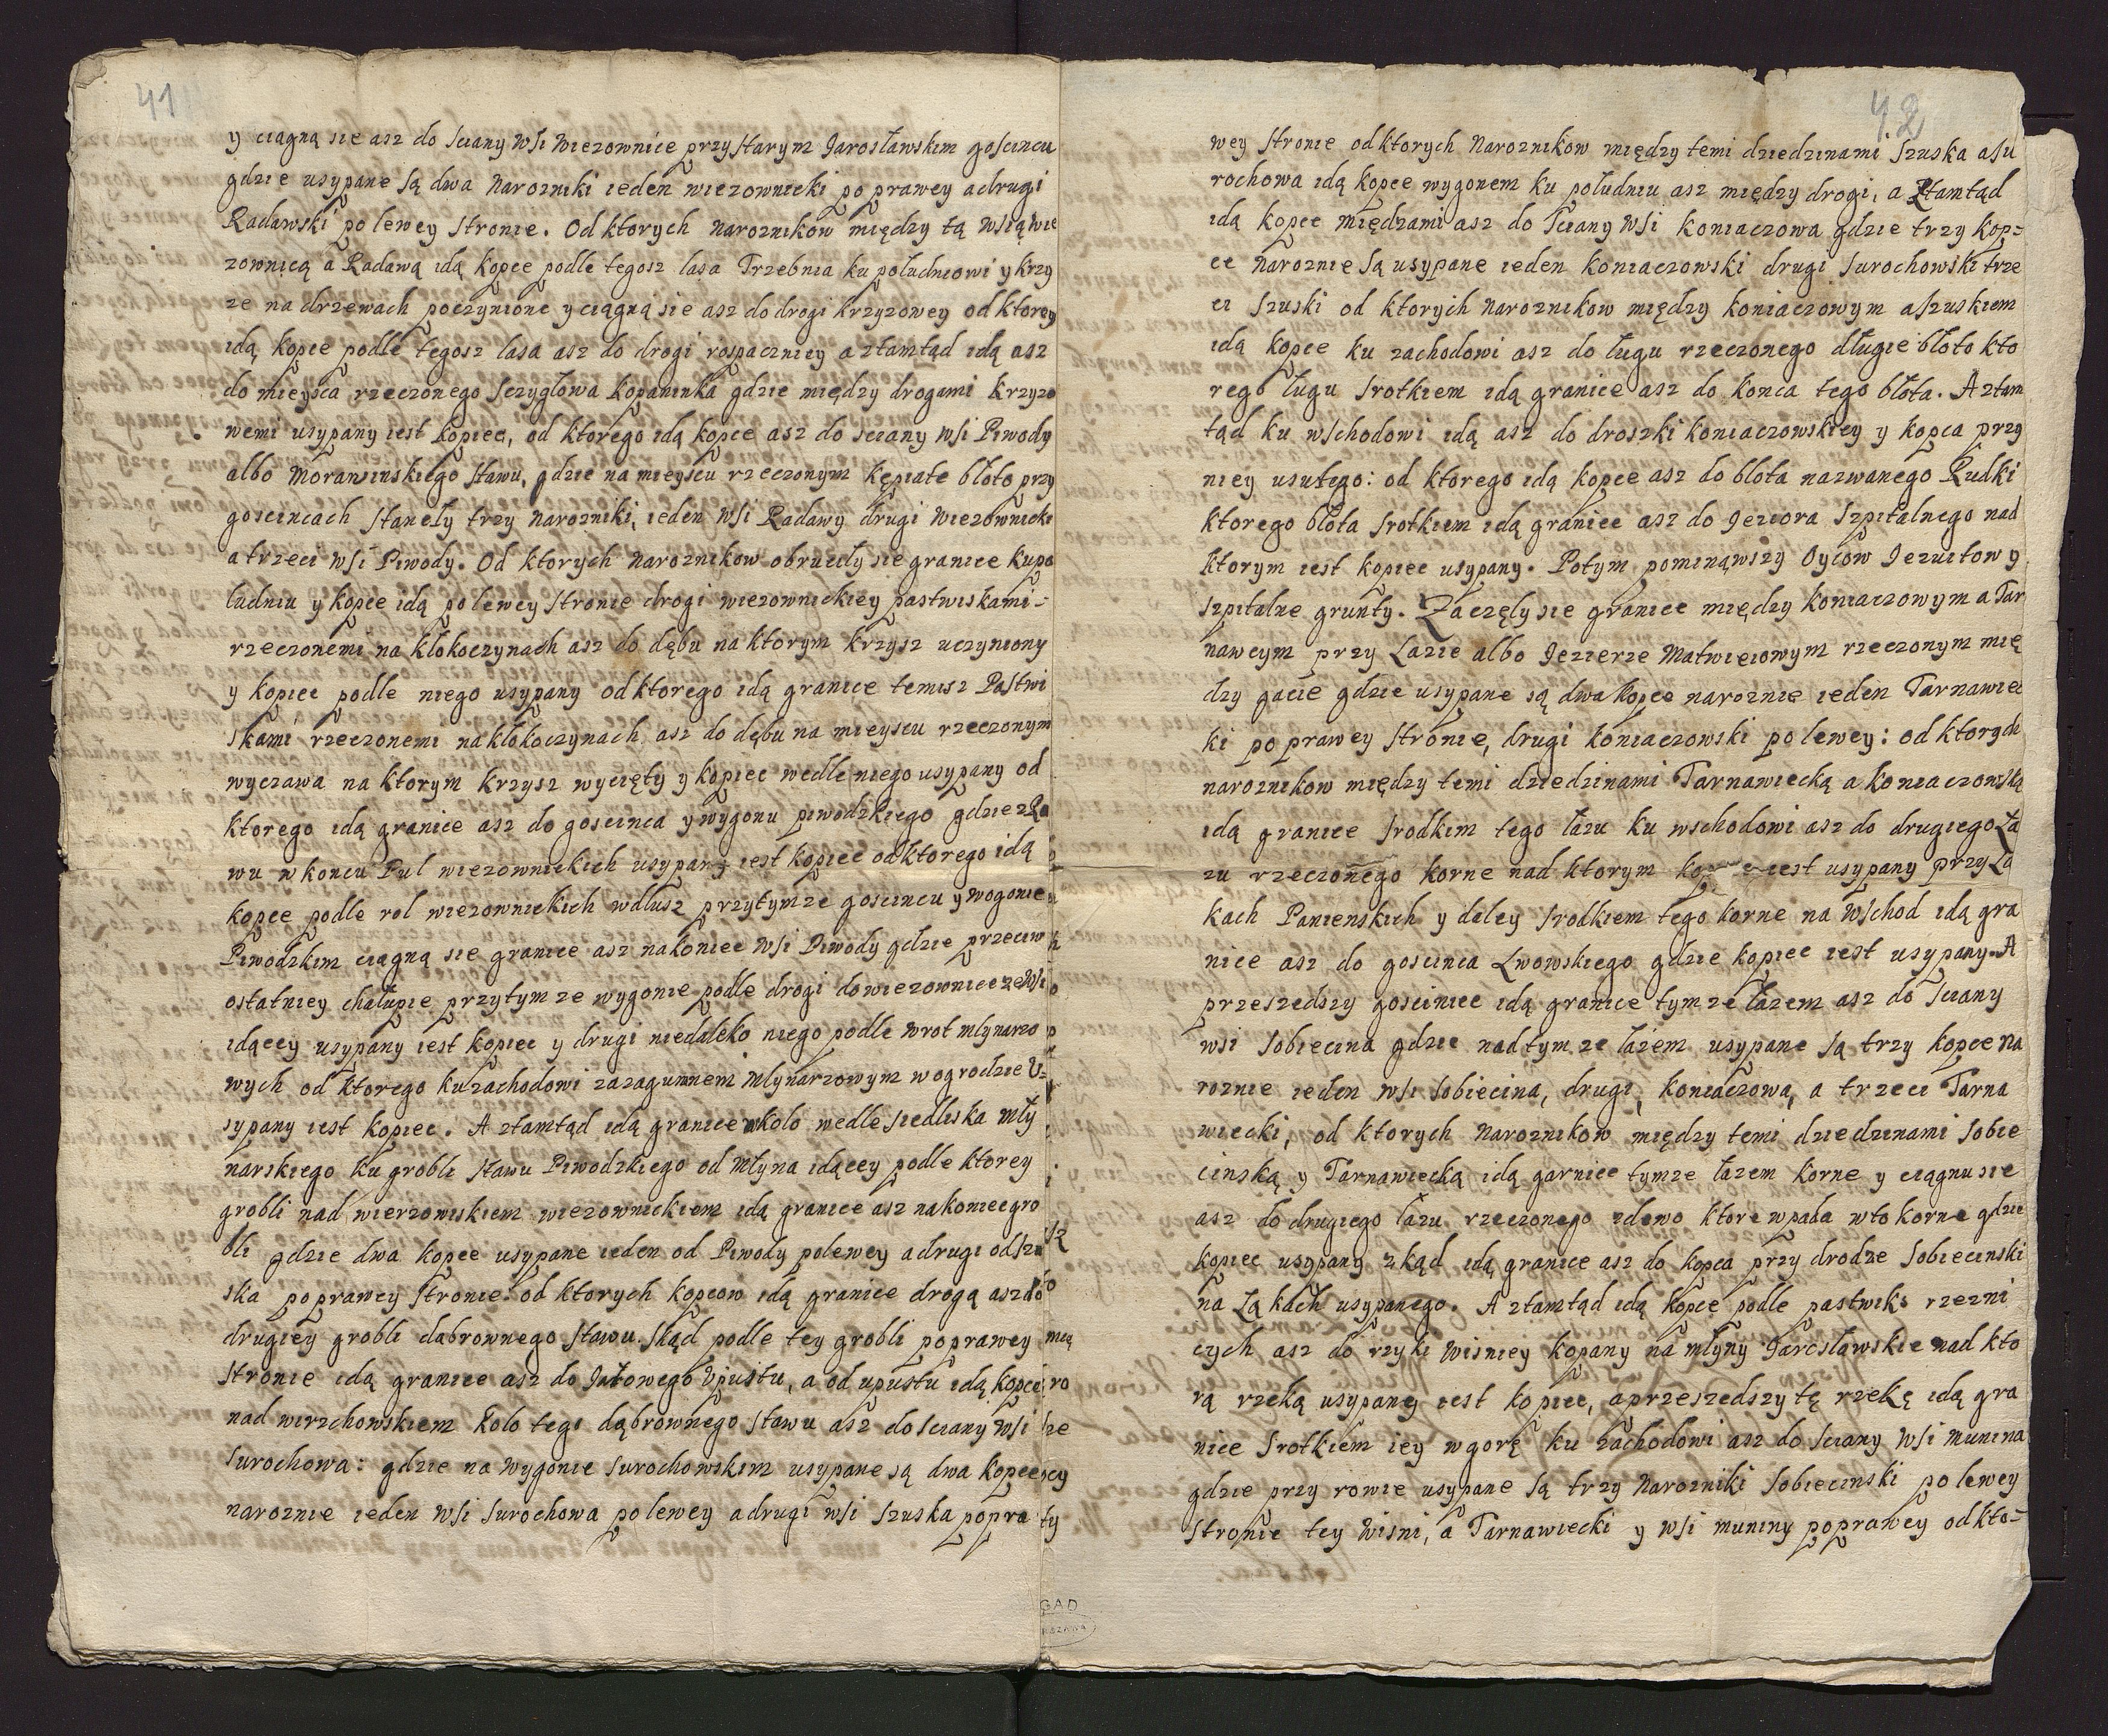 41
y ciągną sie asz do sciany wsi Wiezownice przy starym Jarosławskim goscincu
gdzie usypane są dwa Narozniki ieden wiezownicki po prawey a drugi
Radawski po lewey stronie. Od ktorych naroznikow między tą wsią wie
zownicą a Radawą idą kopce podle tegosz lasa Trzebnia ku południowi y krzy
ze na drzewach poczynione y ciągną sie asz do drogi krzyzowey od ktorey
idą kopce podle tegosz lasa asz do drogi rospaczniey a ztamtąd idą asz
do mieysca rzeczonego sczygłowa kopaninka gdzie między drogami krzyzo
wemi usypany iest kopiec, od ktorego idą kopce asz do sciany wsi Piwody
albo Morawinskiego stawu, gdzie na mieyscu rzeczonym kępiate błoto przy
goscincach staneły trzy narozniki, ieden wsi Radawy drugi wiezownicki
a trzeci wsi Piwody. Od ktorych naroznikow obruciły sie granice ku po
ludniu y kopce idą po lewey stronie drogi wiezownickiey pastwiskami=
rzeczonemi na kłokoczynach asz do dębu na ktorym krzysz uczyniony
y kopiec podle niego usypany od ktorego idą granice temisz Pastwi
skami rzeczonemi na kłokoczynach asz do dębu na mieyscu rzeczonym
wyczawa na ktorym krzysz wycięty y kopiec wedle niego usypany od
ktorego idą granice asz do goscinca y wygonu piwodzkiego gdzie z Ra
wu w koncu Pul wiezownickich usypany iest kopiec od ktorego idą
kopce podle rol wiezownickich wdlusz przy tymze goscincu y wogonie
Piwodzkim ciągną sie granice asz na koniec wsi Piwody gdzie przeciw
ostatniey chałupie przy tymze wygonie podle drogi do wiezownice ze wsi
idącey usypany iest kopiec y drugi niedaleko niego podle wrot mlynarzo
wych od ktorego ku zachodowi za zagumnem Mlynarzowym w ogrodzie U=
sypany iest kopiec. A ztamtąd idą granice wkolo wedle siedliska mły
narskiego ku grobli stawu Piwodzkiego od młyna idącey podle ktorey
grobli nad wierzowiskiem wiezownickiem idą granice asz na koniec gro
bli gdzie dwa kopce usypane ieden od Piwody po lewey a drugi od szu
ska po prawey stronie: od ktorych kopcow idą granice drogą asz do
drugiey grobli dabrownego stawu. Skąd podle tey grobli po prawey
stronie idą granice asz do Jutowego Upustu, a od upustu idą kopce
nad wirzchowskiem kolo tego dąbrownego stawu asz do sciany wsi
Surochowa: gdzie na wygonie Surochowskim usypane są dwa kopce
naroznie ieden wsi Surochowa po lewey a drugi wsi szuska po pra
42
wey stronie od ktorych Naroznikow między temi dziedzinami szuska a su
rochowa idą kopce wygonem ku południu asz między drogi, a ztamtąd
idą kopce miedzami asz do sciany wsi koniaczowa gdzie trzy kop=
ce narozniе są usypane ieden koniaczowski drugi surochowski trze
ci szuski od ktorych naroznikow między koniaczowym a szuskiem
idą kopce ku zachodowi asz do ługu rzeczonego długie błoto kto
rego ługu srotkiem idą granice asz do konca tego błota. A ztam
tąd ku wschodowi idą asz do droszki koniaczowskiey y kopca przy
niey usutego: od ktorego idą kopce asz do blota nazwanego Rudki
ktorego błota srotkiem idą granice asz do Jeziora szpitalnego nad
ktorym iest kopiec usypany. Potym pominąwszy Oycow Jezuitow y
szpitalne grunty. Zaczęły sie granice między koniaczowym a Tar
nawcym przy Łazie albo Jezierze Matwieiowym rzeczonym mię
dzy gacie gdzie usypane są dwa kopce naroznie ieden Tarnawiec
ki po prawey stronie, drugi koniaczowski po lewey: od ktorych
naroznikow między temi dziedzinami Tarnawiecką a koniaczowską
idą granice srodkim tego łazu ku wschodowi asz do drugiego Ła
zu rzeczonego korne nad ktorym iest usypany przy Łą
kach Panienskich y daley srodkiem tego korne na wschod idą gra
nice asz do goscinca Lwowskiego gdzie kopiec iest usypany. A
przeszedszy gosciniec idą granice tymze łazem asz do sciany
wsi Sobiecina gdzie nad tymze łazem usypane są trzy kopce na
roznie ieden wsi Sobiecina, drugi, koniaczowa, a trzeci Tarna
wiecki, od ktorych naroznikow między temi dziedzinami sobie
cinską y Tarnawiecką idą garnice tymze łazem korne y ciągnu sie
asz do drugiego łazu rzeczonego zdewo ktore wpada w to korne gdzie
kopiec usypany zkąd idą granice asz do kopca przy drodze sobiecinski
na Łąkach usypanego. A ztamtąd idą kopce podle pastwisk rzezni
cych asz do rzyki wisniey kopany na młyny Jarosławskie nad kto
rą rzeką usypany iest kopiec, a przeszedszy tę rzekę idą gra
nice srotkiem iey w gorę ku zachodowi asz do sciany wsi munina
gdzie przy rowie usypane są trzy narozniki sobiecinski po lewey
stronie tey wisni, a Tarnawiecki y wsi muniny po prawey od kto=